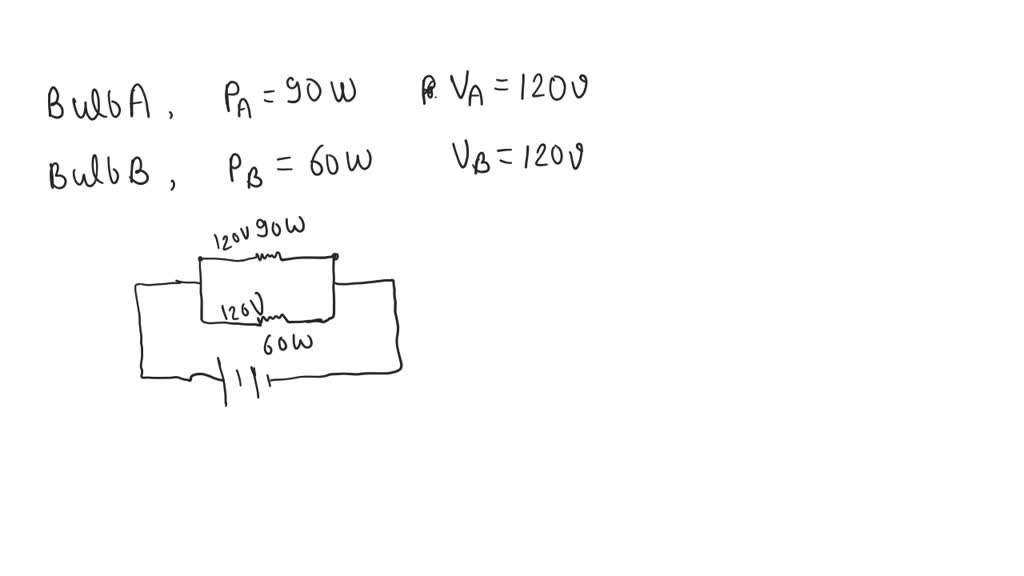 BulbA, P_A = 90W V_A = 120V
BulbB, P_B = 60W V_B = 120V
120V 90W
120V
60W